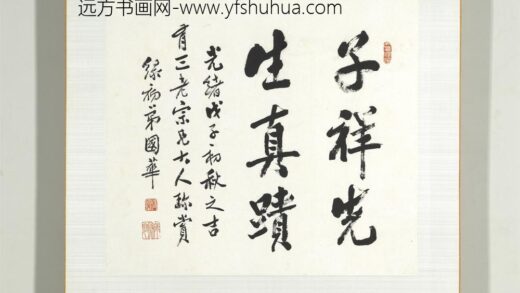 远方书画网-www.yfshuhua.com
子祥先
生真蹟
光緒戊子初秋之吉
有三老宗兄大人
賞
弟國華